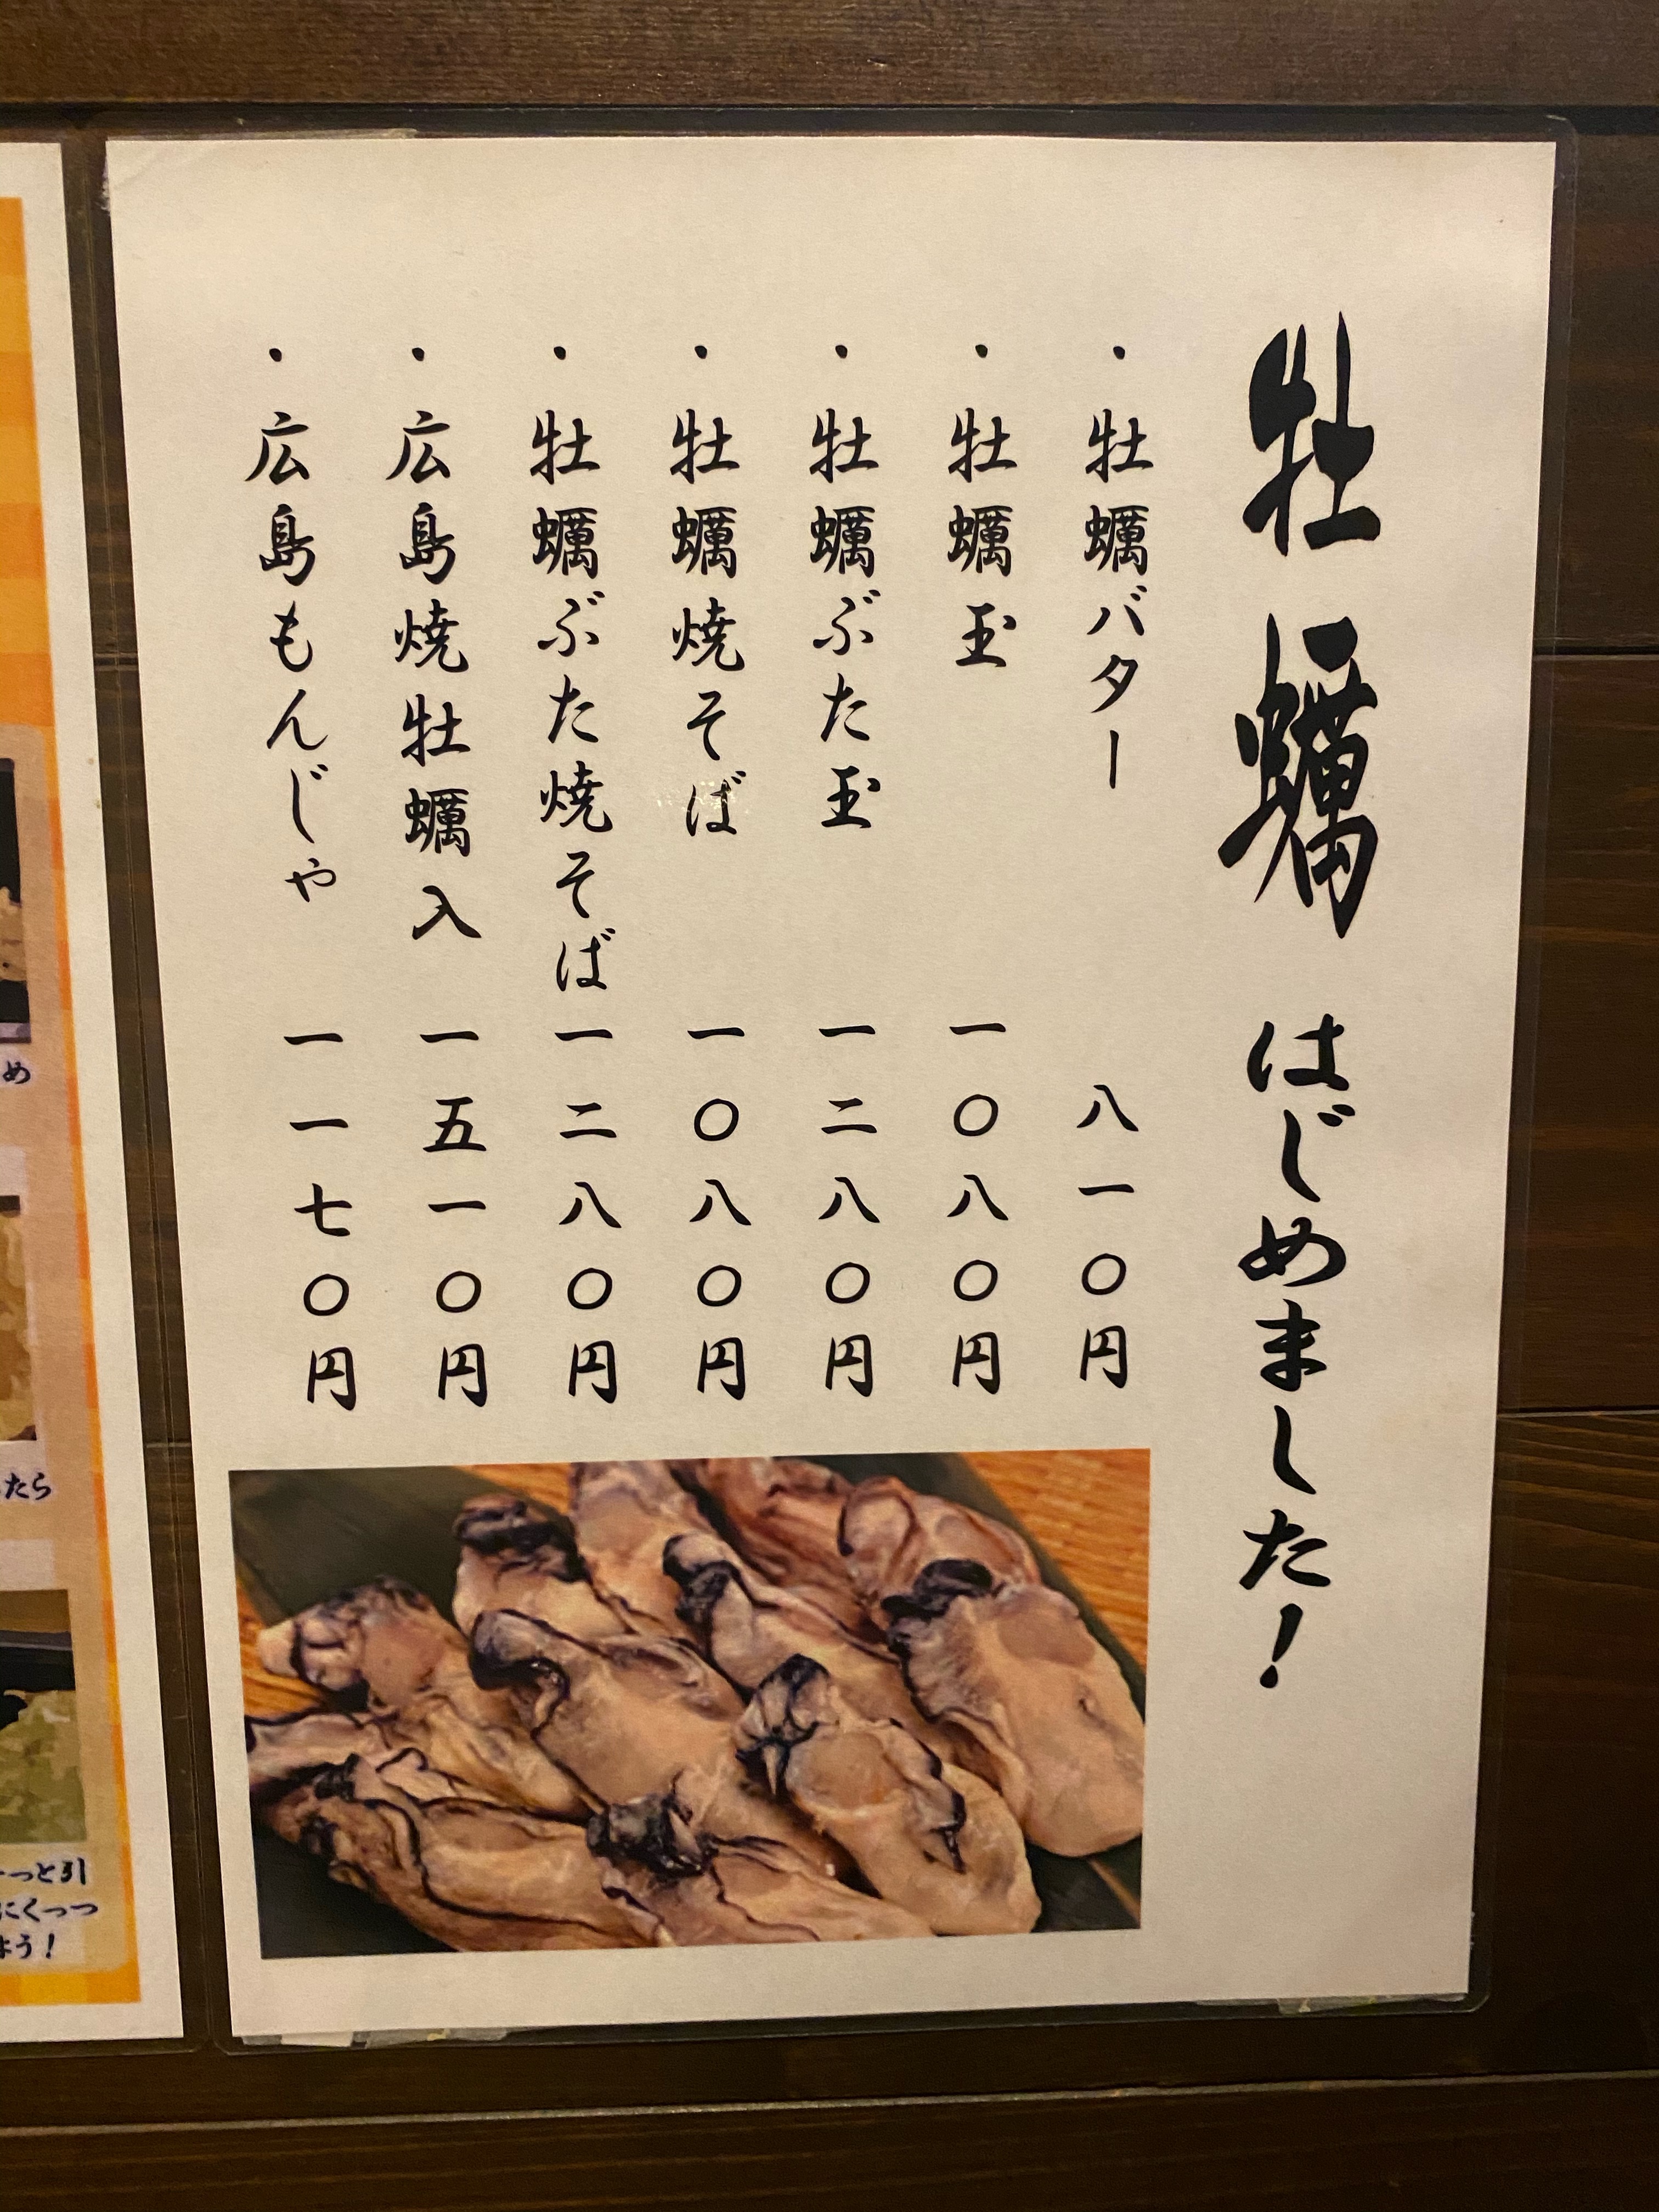 牡蠣 はじめました!
・牡蠣バター 八一〇円
・牡蠣玉 一〇八〇円
・牡蠣ぶた玉 一二八〇円
・牡蠣焼そば 一〇八〇円
・牡蠣ぶた焼そば 一二八〇円
・広島焼牡蠣入 一五一〇円
・広島もんじゃ 一一七〇円
め
たら
っと引
にくっつ
よう!